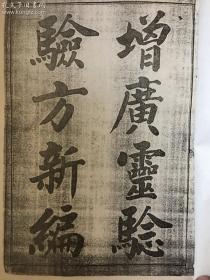 增廣靈驗
驗方新編